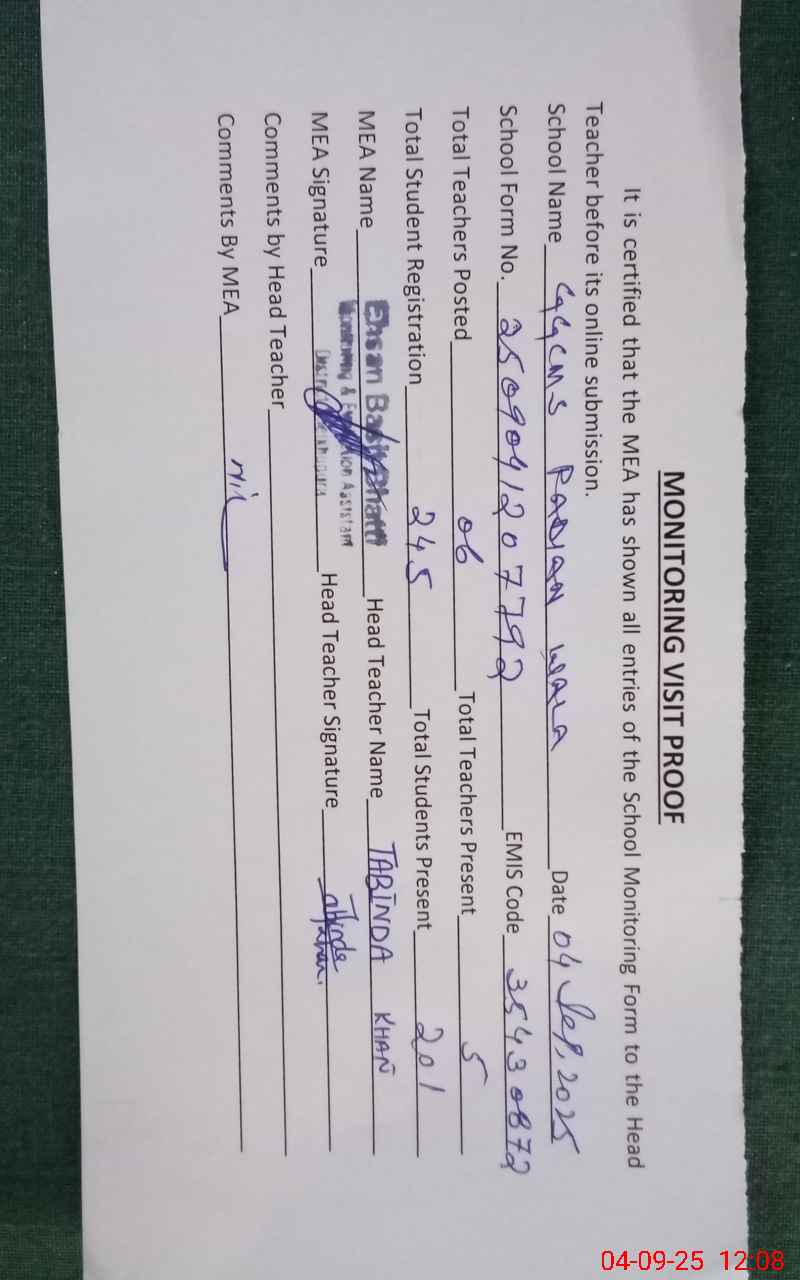 MONITORING VISIT PROOF
It is certified that the MEA has shown all entries of the School Monitoring Form to the Head
Teacher before its online submission.
School Name GGCMS RADIAN WALA Date 04 Sep, 2025
School Form No. 2509041207792 EMIS Code 35430872
Total Teachers Posted 06 Total Teachers Present 5
Total Student Registration 245 Total Students Present 201
MEA Name Ehsan Head Teacher Name TABINDA KHAN
Monitoring & Assistant
MEA Signature Head Teacher Signature Tabinda Khan.
Comments by Head Teacher
Comments By MEA Nil
04-09-25 12:08